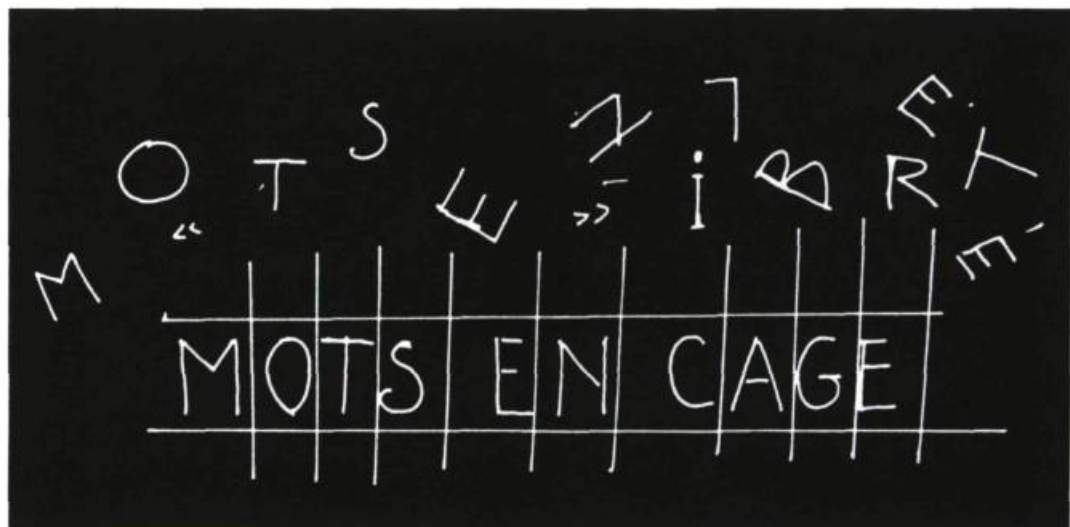 MOTS EN LiBERTÉ
« »
MOTS EN CAGE